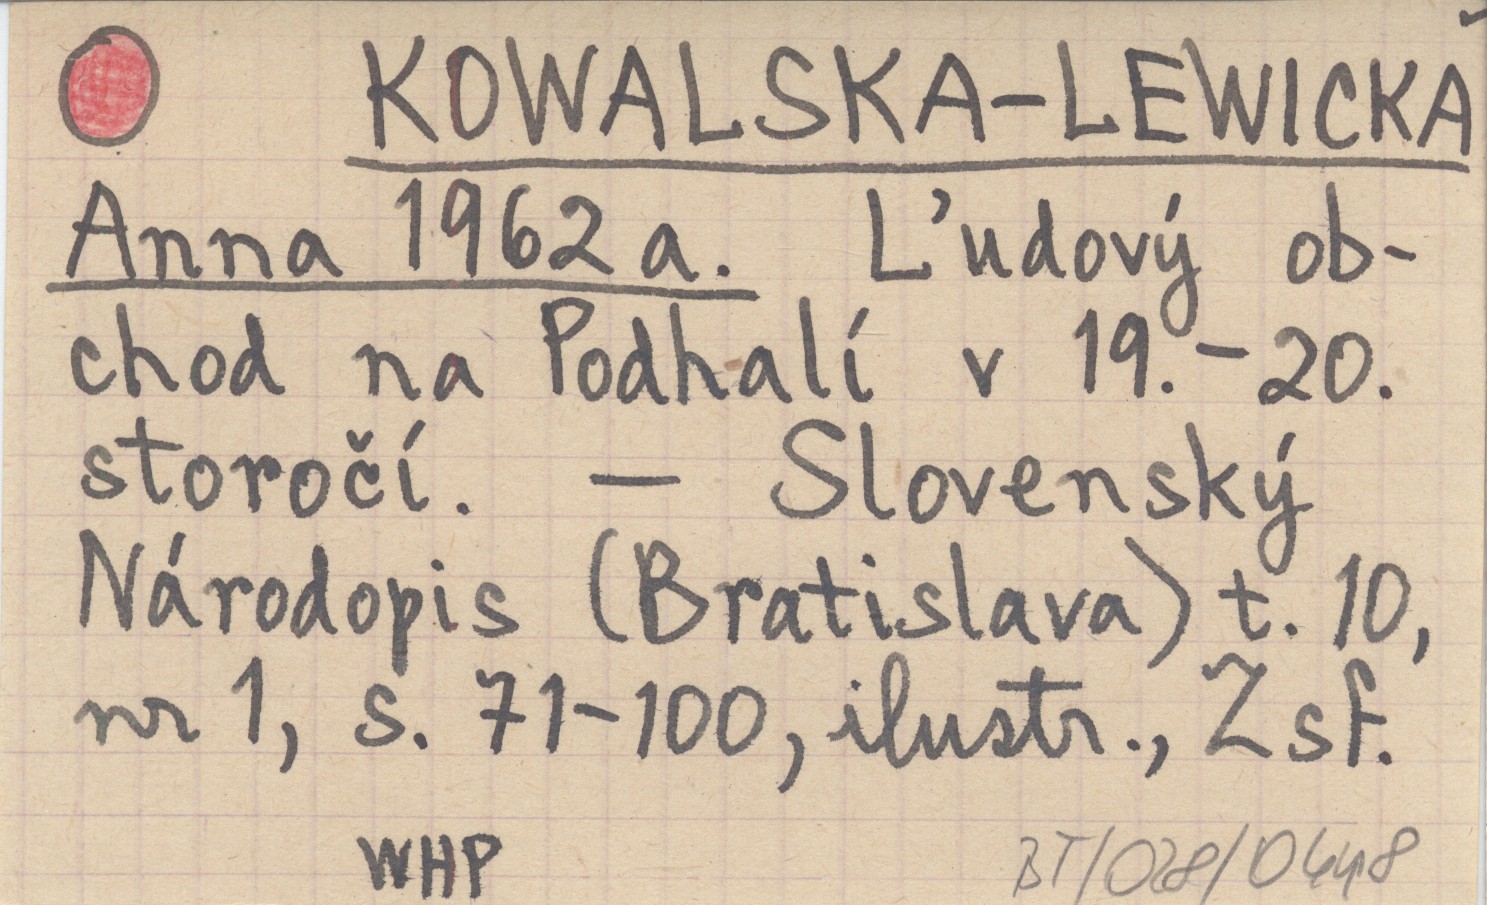 KOWALSKA-LEWICKA
Anna 1962a. Ľudový ob-
chod na Podhalí v 19.-20.
storočí. — Slovenský
Národopis (Bratislava) t. 10,
nr 1, s. 71-100, ilustr., Zsf.
WHP
BT/028/0448